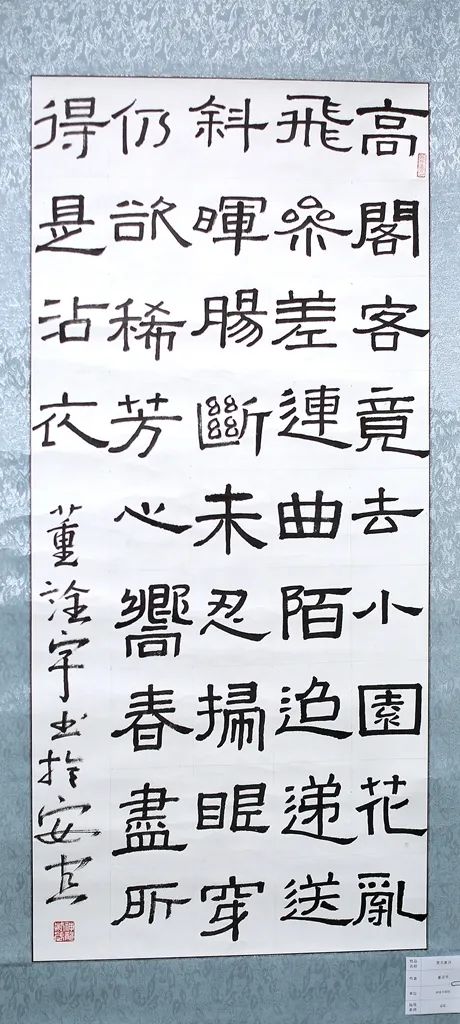 高閣客竟去小園花亂
飛參差連曲陌迢遞送
斜暉腸斷未忍掃眼穿
仍欲稀芳心嚮春盡所
得是沾衣
董詮宇书於安